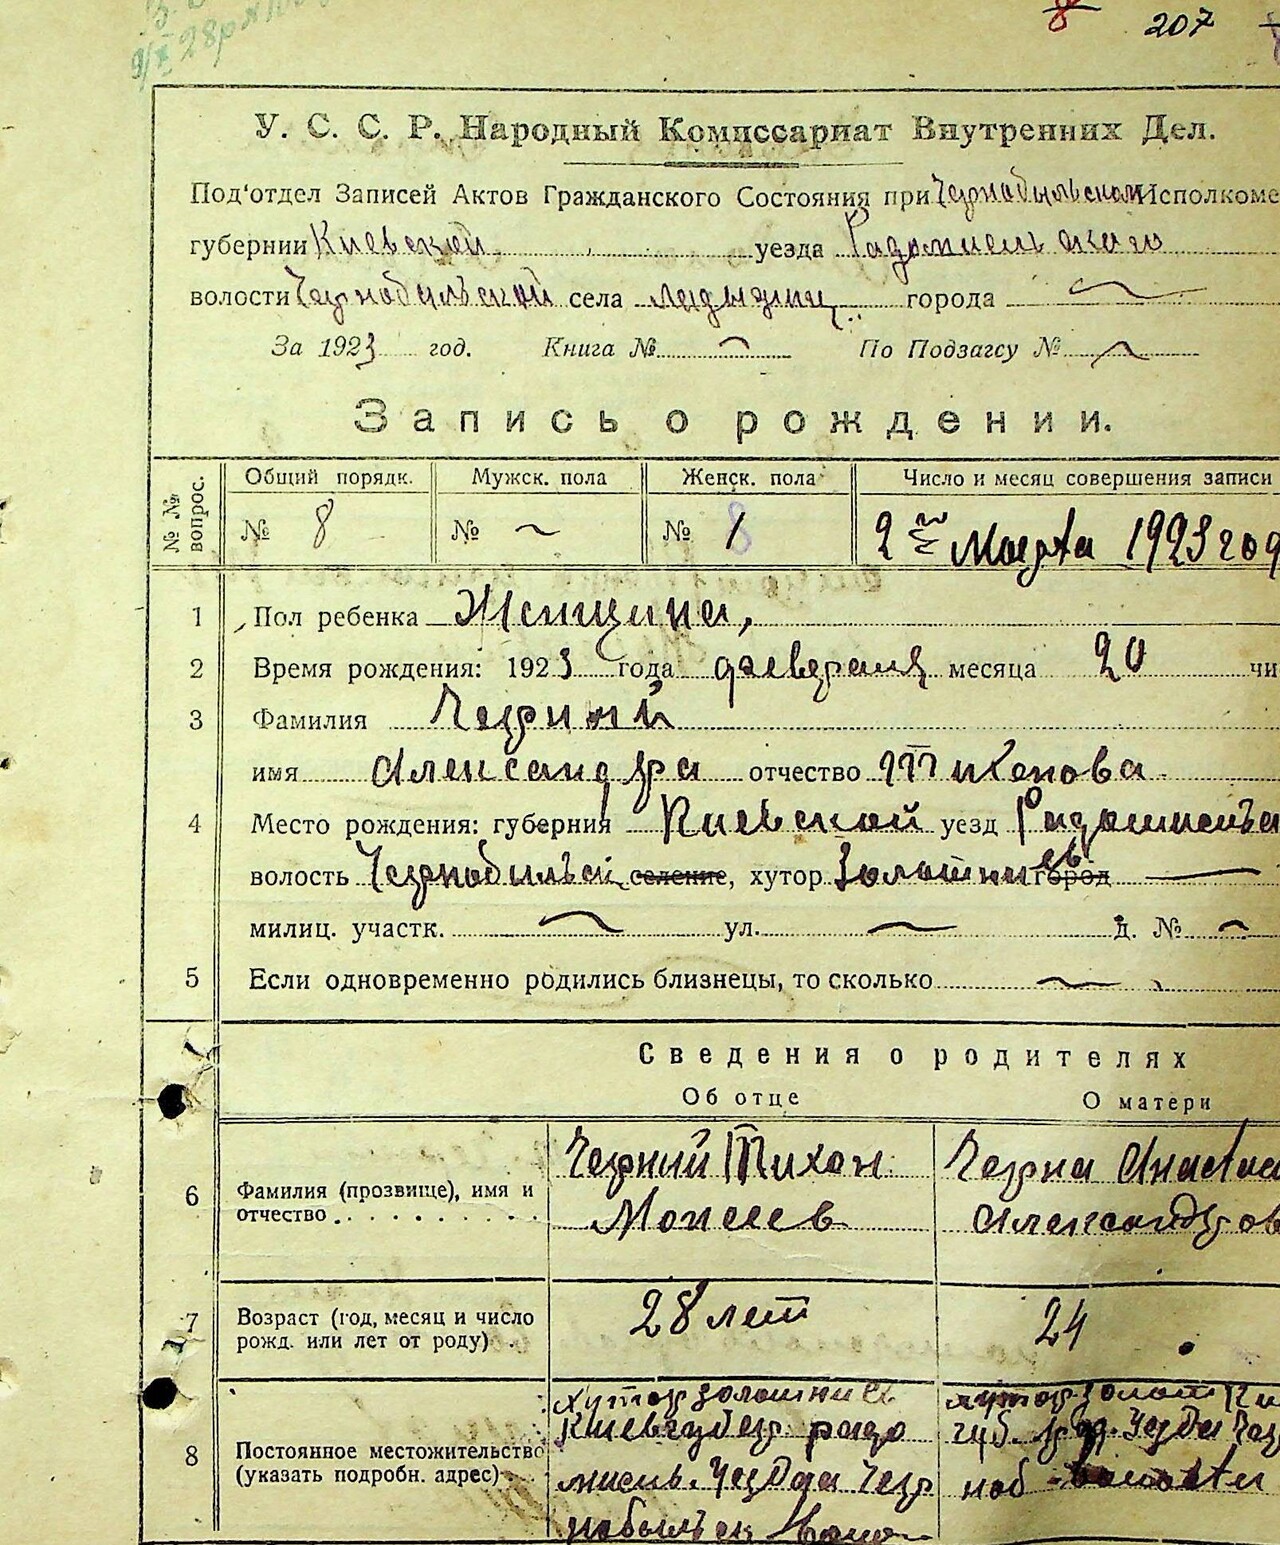 8 207
9/X 28р
У. С. С. Р. Народный Комиссариат Внутренних Дел.
Под'отдел Записей Актов Гражданского Состояния при Чернобыльском Исполкоме
губернии Киевской уезда Радомисльского
волости Чернобыльской села города
За 1923 год. Книга № По Подзагсу №
Запись о рождении.
№ № вопрос. Общий порядк. Мужск. пола Женск. пола Число и месяц совершения записи
№ 8 № № 1 2го Марта 1923 год
1 Пол ребенка Женщина,
2 Время рождения: 1923 года февраля месяца 20 чи
3 Фамилия Черний
имя Александра отчество Тихонова
4 Место рождения: губерния Киевской уезд Радомисльс
волость Чернобыльской селение, хутор Золотниев город
милиц. участк. ул. д. №
5 Если одновременно родились близнецы, то сколько
Сведения о родителях
Об отце О матери
6 Фамилия (прозвище), имя и отчество Черний Тихон Моисеев Черна Анастас Александров
7 Возраст (год, месяц и число рожд. или лет от роду) 28 лет 24
8 Постоянное местожительство (указать подробн. адрес)
хутор Золотниев
Киев губер. радо
мисль. уезда Чер
нобыльск волос
хутор Золотни
губ. рад. уезда Чер
ноб волости